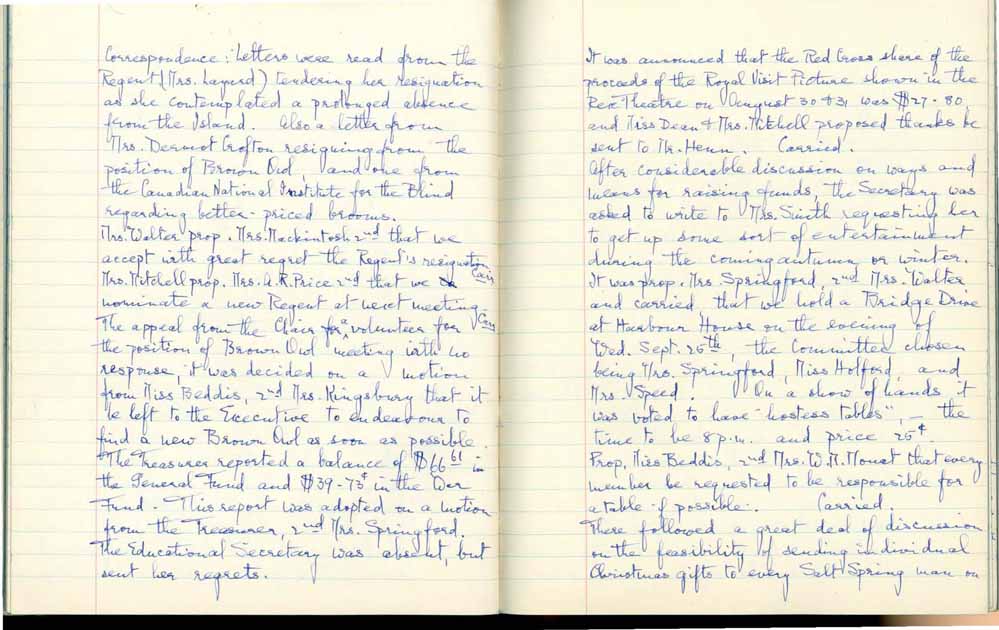 Correspondence: Letters were read from the
Regent (Mrs. Layard) tendering her resignation
as she contemplated a prolonged absence
from the Island. Also a letter from
Mrs. Dermot Crofton resigning from the
position of Brown Owl, and one from
the Canadian National Institute for the Blind
regarding better-priced brooms.
Mrs. Walter prop. Mrs. Mackintosh 2nd that we
accept with great regret the Regent's resignation
Carr
Mrs. Mitchell prop. Mrs. A.R. Price 2nd that we
nominate a new Regent at next meeting.
Carr
The appeal from the Chair for a volunteer for
the position of Brown Owl meeting with no
response, it was decided on a motion
from Miss Beddis, 2nd Mrs. Kingsbury that it
be left to the Executive to endeavour to
find a new Brown Owl as soon as possible.
The Treasurer reported a balance of $66 61 in
the General Fund and $39-73¢ in the War
Fund. This report was adopted on a motion
from the Treasurer, 2nd Mrs. Springford.
The Educational Secretary was absent, but
sent her regrets.
It was announced that the Red Cross share of the
proceeds of the Royal Visit Picture shown in the
Rex Theatre on August 30 & 31 was $27-80,
and Miss Dean & Mrs. Mitchell proposed thanks be
sent to Mr. Henn. Carried.
After considerable discussion on ways and
means for raising funds, the Secretary was
asked to write to Mrs. Smith requesting her
to get up some sort of entertainment
during the coming autumn or winter.
It was prop. Mrs. Springford, 2nd Mrs. Walter
and carried, that we hold a Bridge Drive
at Harbour House on the evening of
Wed. Sept. 25th, the Committee chosen
being Mrs. Springford, Miss Holford, and
Mrs. Speed. On a show of hands it
was voted to have "hostess tables", - the
time to be 8 p.m. and price 25¢.
Prop. Miss Beddis, 2nd Mrs. W.M. Mouat that every
member be requested to be responsible for
a table if possible. Carried.
There followed a great deal of discussion
on the feasibility of sending individual
Christmas gifts to every Salt Spring man on